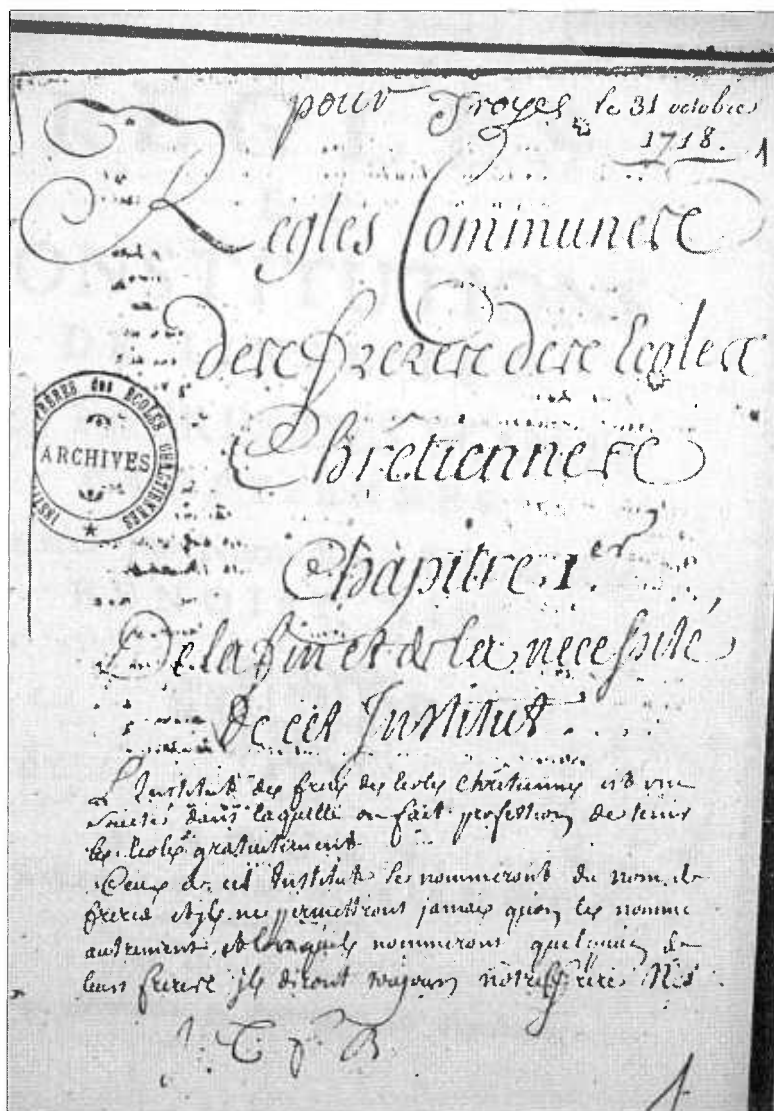 pour Troyes le 31 octobre
1718. 1
Regles Communes
des freres des Ecoles
Chrêtiennes
INSTI FRÈRES des ÉCOLES CHRÉTIENNES
ARCHIVES
Chapitre 1.er
De la fin et de la necessité
De cet Institut.
L'Institut des freres des Ecoles Chrêtiennes est une
Societé dans laquelle on fait profession de tenir
les Ecoles gratuitement
Ceux de cet Institut se nommeront du nom de
freres et ils ne permettront jamais qu'on les nomme
autrement, et lorsquils nommeront quelqu'un de
leurs freres ils diront toujours notre frere N.